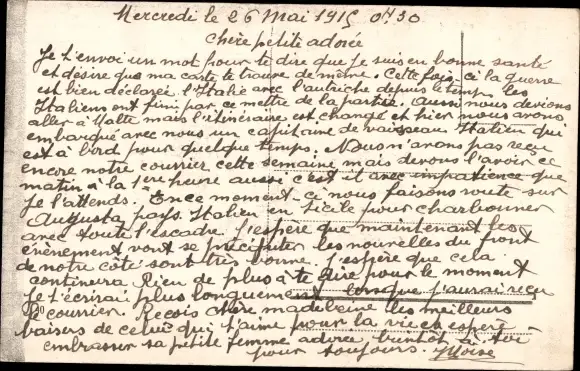 Mercredi le 26 Mai 1915 0h30
Chère petite adorée
Je t'envoi un mot pour te dire que je suis en bonne santé
et désire que ma carte te trouve de même. Cette fois-ci la guerre
est bien déclarée l'Italie avec l'autriche depuis le temps les
Italiens ont fini par ce mettre de la partie. Aussi nous devions
aller à Malte mais l'itinéraire est changé et hier nous avons
embarqué avec nous un capitaine de vaisseau Italien qui
est à bord pour quelque temps. Nous n'avons pas reçu
encore notre courrier cette semaine mais devons l'avoir ce
matin à la 1ere heure aussi c'est il avec impatience que
je l'attends. En ce moment ci nous faisons route sur
Augusta pays Italien en Sicile pour charbonner
avec toute l'escadre. J'espère que maintenant les
évènement vont se précipiter les nouvelles du front
de notre côté sont très bonne. J'espère que cela
continura. Rien de plus à te dire pour le moment
je t'écrirai plus longuement lorsque j'aurai reçu
le courrier. Recois chère madeleine les meilleurs
baisers de celui qui t'aime pour la vie et espère
embrasser sa petite femme adorée bientôt à toi
pour toujours. Moïse